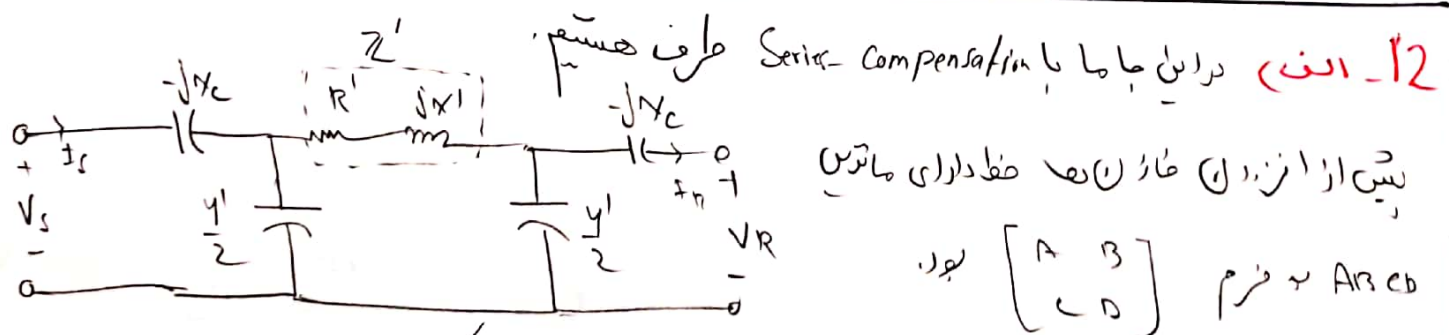 12_ الف) در این جا ما با Series-Compensation طرف هستیم.
پیش از افزودن خازن ها خط دارای ماتریس
ABCD به فرم [A B
C D] بود.
Z'
-jXc
R'
jX'
-jXc
+
Is
Vs
-
y'/2
y'/2
+
VR
-